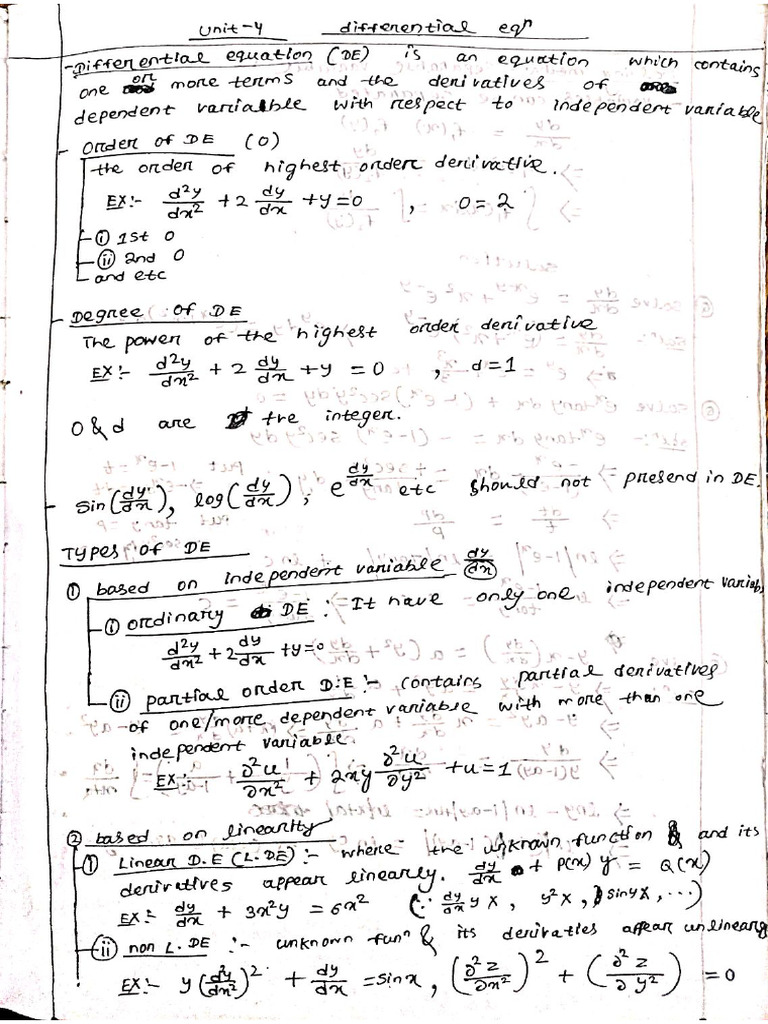 Unit-4 differential eqⁿ
- Differential equation (DE) is an equation which contains
one or more terms and the derivatives of
dependent variable with respect to independent variable
- Order of DE (O)
the order of highest order derivative.
EX:- d²y/dx² + 2 dy/dx + y = 0 , O = 2
(i) 1st O
(ii) 2nd O
and etc
- Degree of DE
The power of the highest order derivative
EX:- d²y/dx² + 2 dy/dx + y = 0 , d = 1
O & d are +ve integer.
- sin(dy/dx), log(dy/dx), e^(dy/dx) etc should not presend in DE.
Types of DE
① based on independent variable dy/dx
(i) ordinary DE :- It have only one independent variab
d²y/dx² + 2 dy/dx + y = 0
(ii) partial order D.E :- contains partial derivatives
of one/more dependent variable with more than one
independent variable.
EX:- ∂²u/∂x² + 2xy ∂²u/∂y² + u = 1
② based on linearity
(i) Linear D.E (L.DE) :- where the unknown function & and its
derivatives appear linearly. dy/dx + P(x) y = Q(x)
EX:- dy/dx + 3x²y = 6x² (∵ dy/dx y X, y² X, siny X, ...)
(ii) non L.DE :- unknown funⁿ & its derivaties appear unlinearly
EX:- y(d²y/dx²)² + dy/dx = sinx, (∂²z/∂x²)² + (∂²z/∂y²) = 0